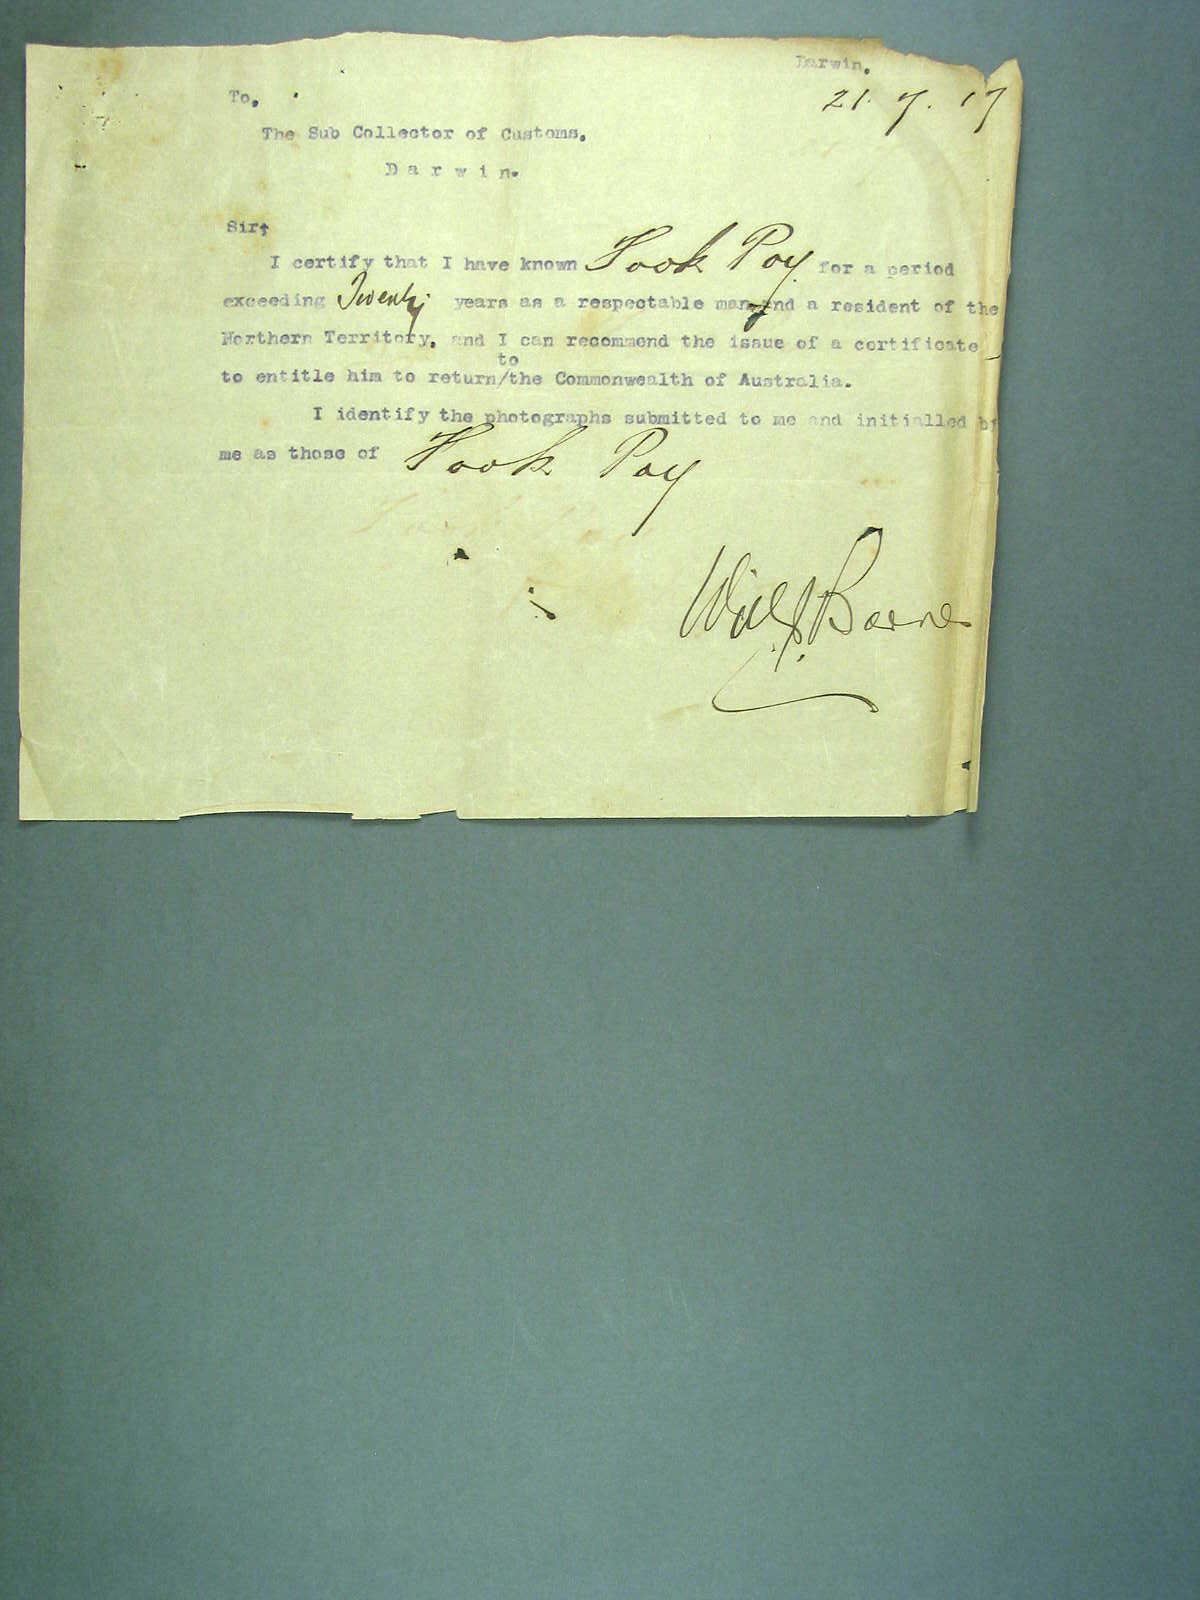 Darwin.
21. 7. 17
To,
The Sub Collector of Customs,
Darwin.
Sir,
I certify that I have known Fook Poy for a period
exceeding Twenty years as a respectable man and a resident of the
Northern Territory, and I can recommend the issue of a certificate
to
to entitle him to return/the Commonwealth of Australia.
I identify the photographs submitted to me and initialled by
me as those of Fook Poy
Will J. Barnes